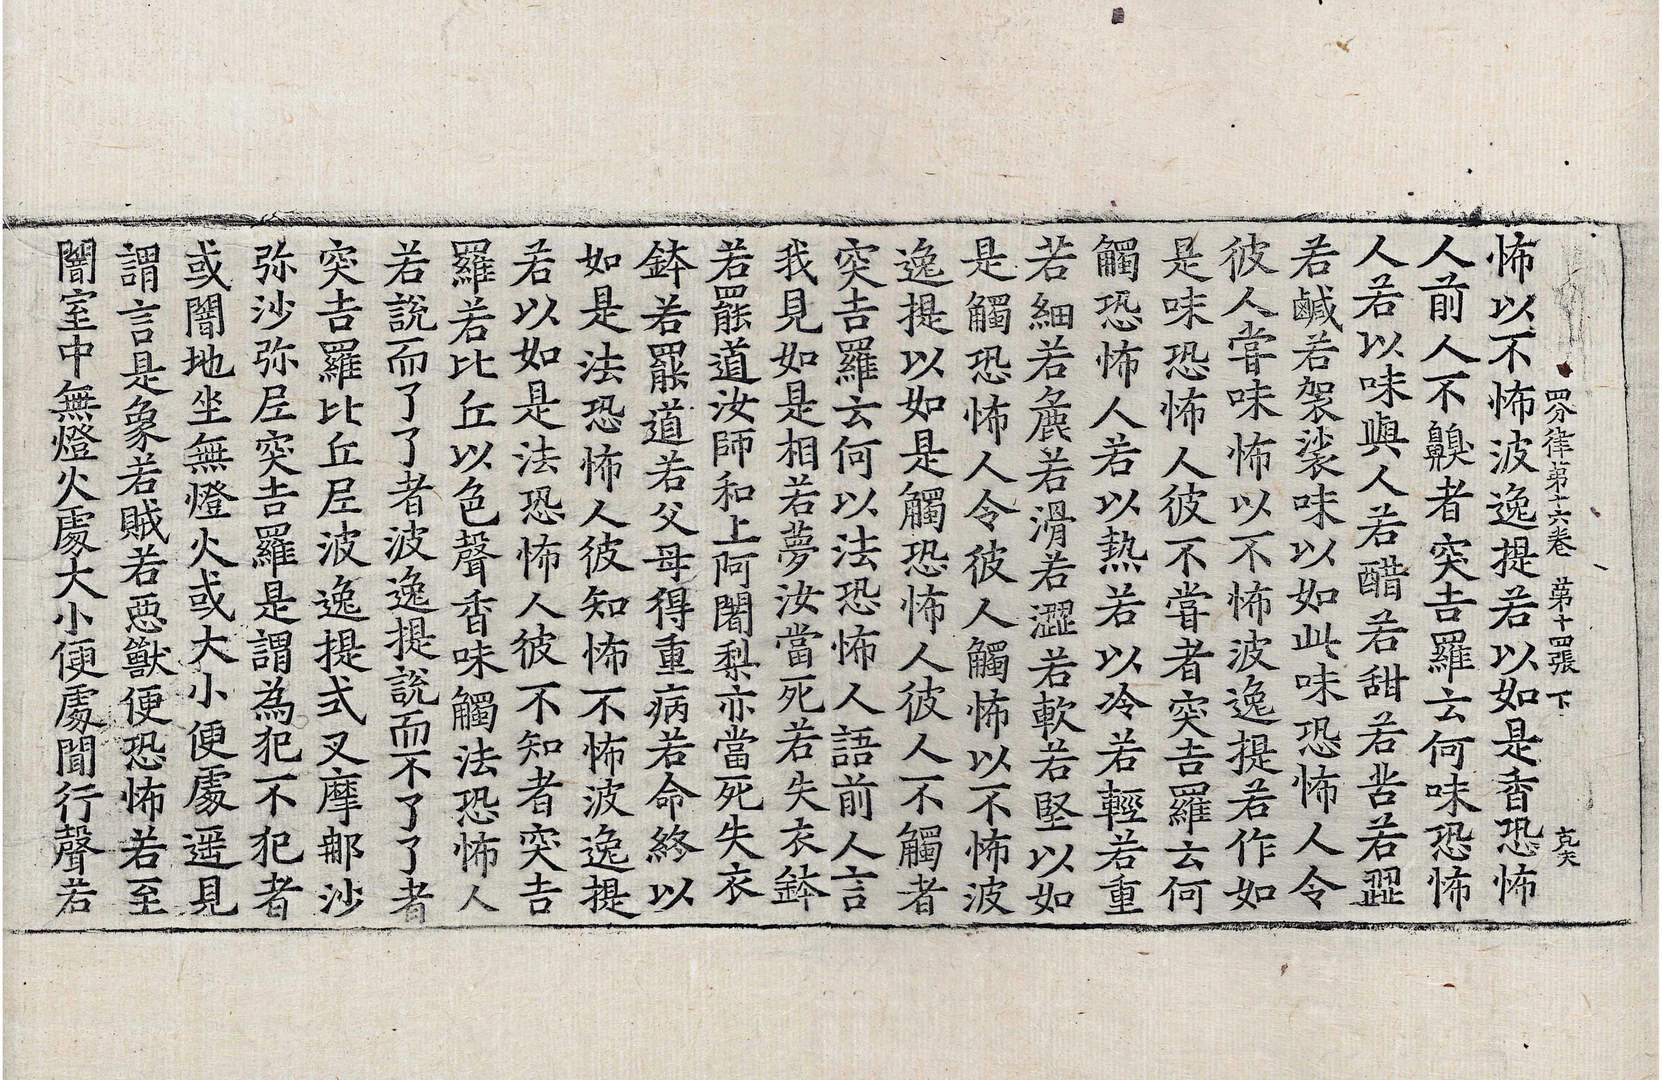 四分律第十六卷　第十四張　下　克夫
怖以不怖波逸提若以如是香恐怖
人前人不齅者突吉羅云何味恐怖
人若以味與人若醋若甜若苦若澀
若鹹若袈裟味以如此味恐怖人令
彼人甞味怖以不怖波逸提若作如
是味恐怖人彼不甞者突吉羅云何
觸恐怖人若以熱若以冷若輕若重
若細若麁若滑若澀若軟若堅以如
是觸恐怖人令彼人觸怖以不怖波
逸提以如是觸恐怖人彼人不觸者
突吉羅云何以法恐怖人語前人言
我見如是相若夢汝當死若失衣鉢
若罷道汝師和上阿闍梨亦當死失衣
鉢若罷道若父母得重病若命終以
如是法恐怖人彼知怖不怖波逸提
若以如是法恐怖人彼不知者突吉
羅若比丘以色聲香味觸法恐怖人
若說而了了者波逸提說而不了了者
突吉羅比丘尼波逸提式叉摩那沙
弥沙弥尼突吉羅是謂為犯不犯者
或闇地坐無燈火或大小便處遥見
謂言是象若賊若惡獸便恐怖若至
闇室中無燈火處大小便處聞行聲若